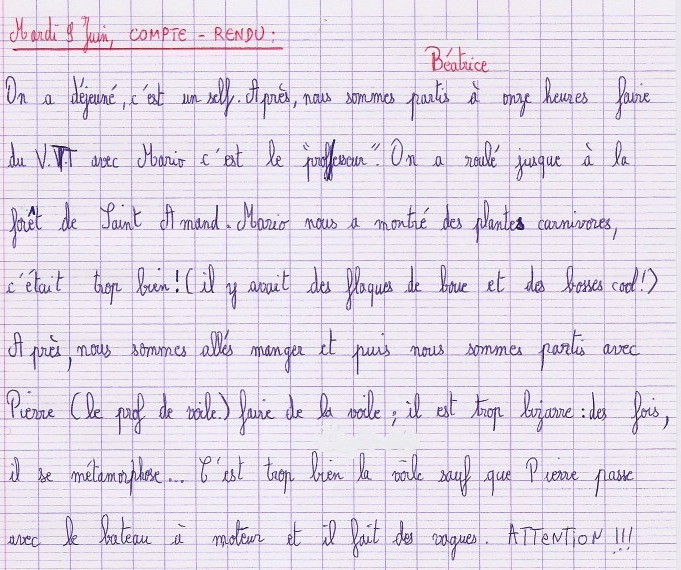 Mardi 9 Juin, COMPTE - RENDU :
Béatrice
On a déjeuné, c'est un self. Après, nous sommes partis à onze heures faire
du V.TT avec Mario c'est le "professeur". On a roulé jusque à la
forêt de Saint Amand. Mario nous a montré des plantes carnivores,
c'était trop bien ! ( il y avait des flaques de boue et des bosses cool ! )
Après, nous sommes allés manger et puis nous sommes partis avec
Pierre ( le prof de voile. ) faire de la voile ; il est trop bizarre : des fois,
il se métamorphose... C'est trop bien la voile sauf que Pierre passe
avec le bateau à moteur et il fait des vagues. ATTENTION !!!